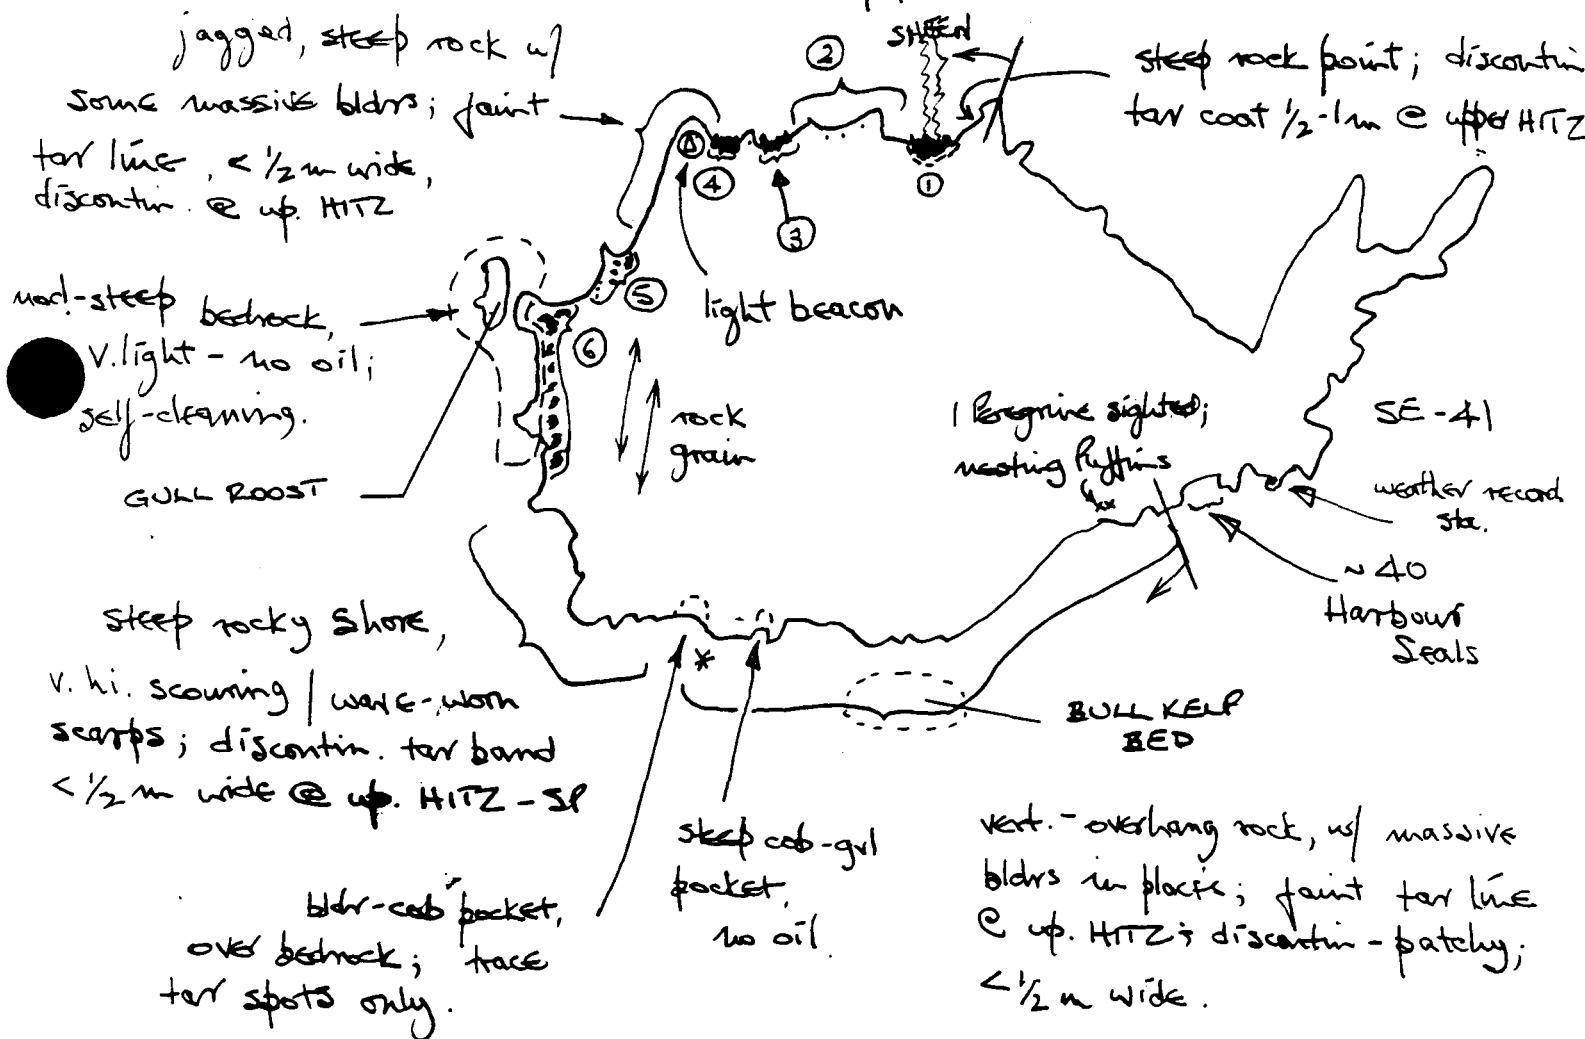 jagged, steep rock w/
some massive bldrs; faint
tar line, < 1/2 m wide,
discontin. @ up. HITZ
SHEEN
②
steep rock point; discontin
tar coat 1/2-1m @ upper HITZ
①
④
③
⑤
light beacon
mod-steep bedrock,
V. light - no oil;
self-cleaning.
⑥
rock
grain
GULL ROOST
1 Peregrine sighted;
nesting Puffins
xx
SE-41
weather record
sta.
~ 40
Harbour
Seals
steep rocky shore,
v. hi. scouring / wave-worn
scarps; discontin. tar band
< 1/2 m wide @ up. HITZ - SP
*
BULL KELP
BED
steep cob-grvl
pocket,
no oil.
bldr-cob pocket,
over bedrock; trace
tar spots only.
vert. - overhang rock, w/ massive
bldrs in places; faint tar line
@ up. HITZ; discontin - patchy;
< 1/2 m wide.